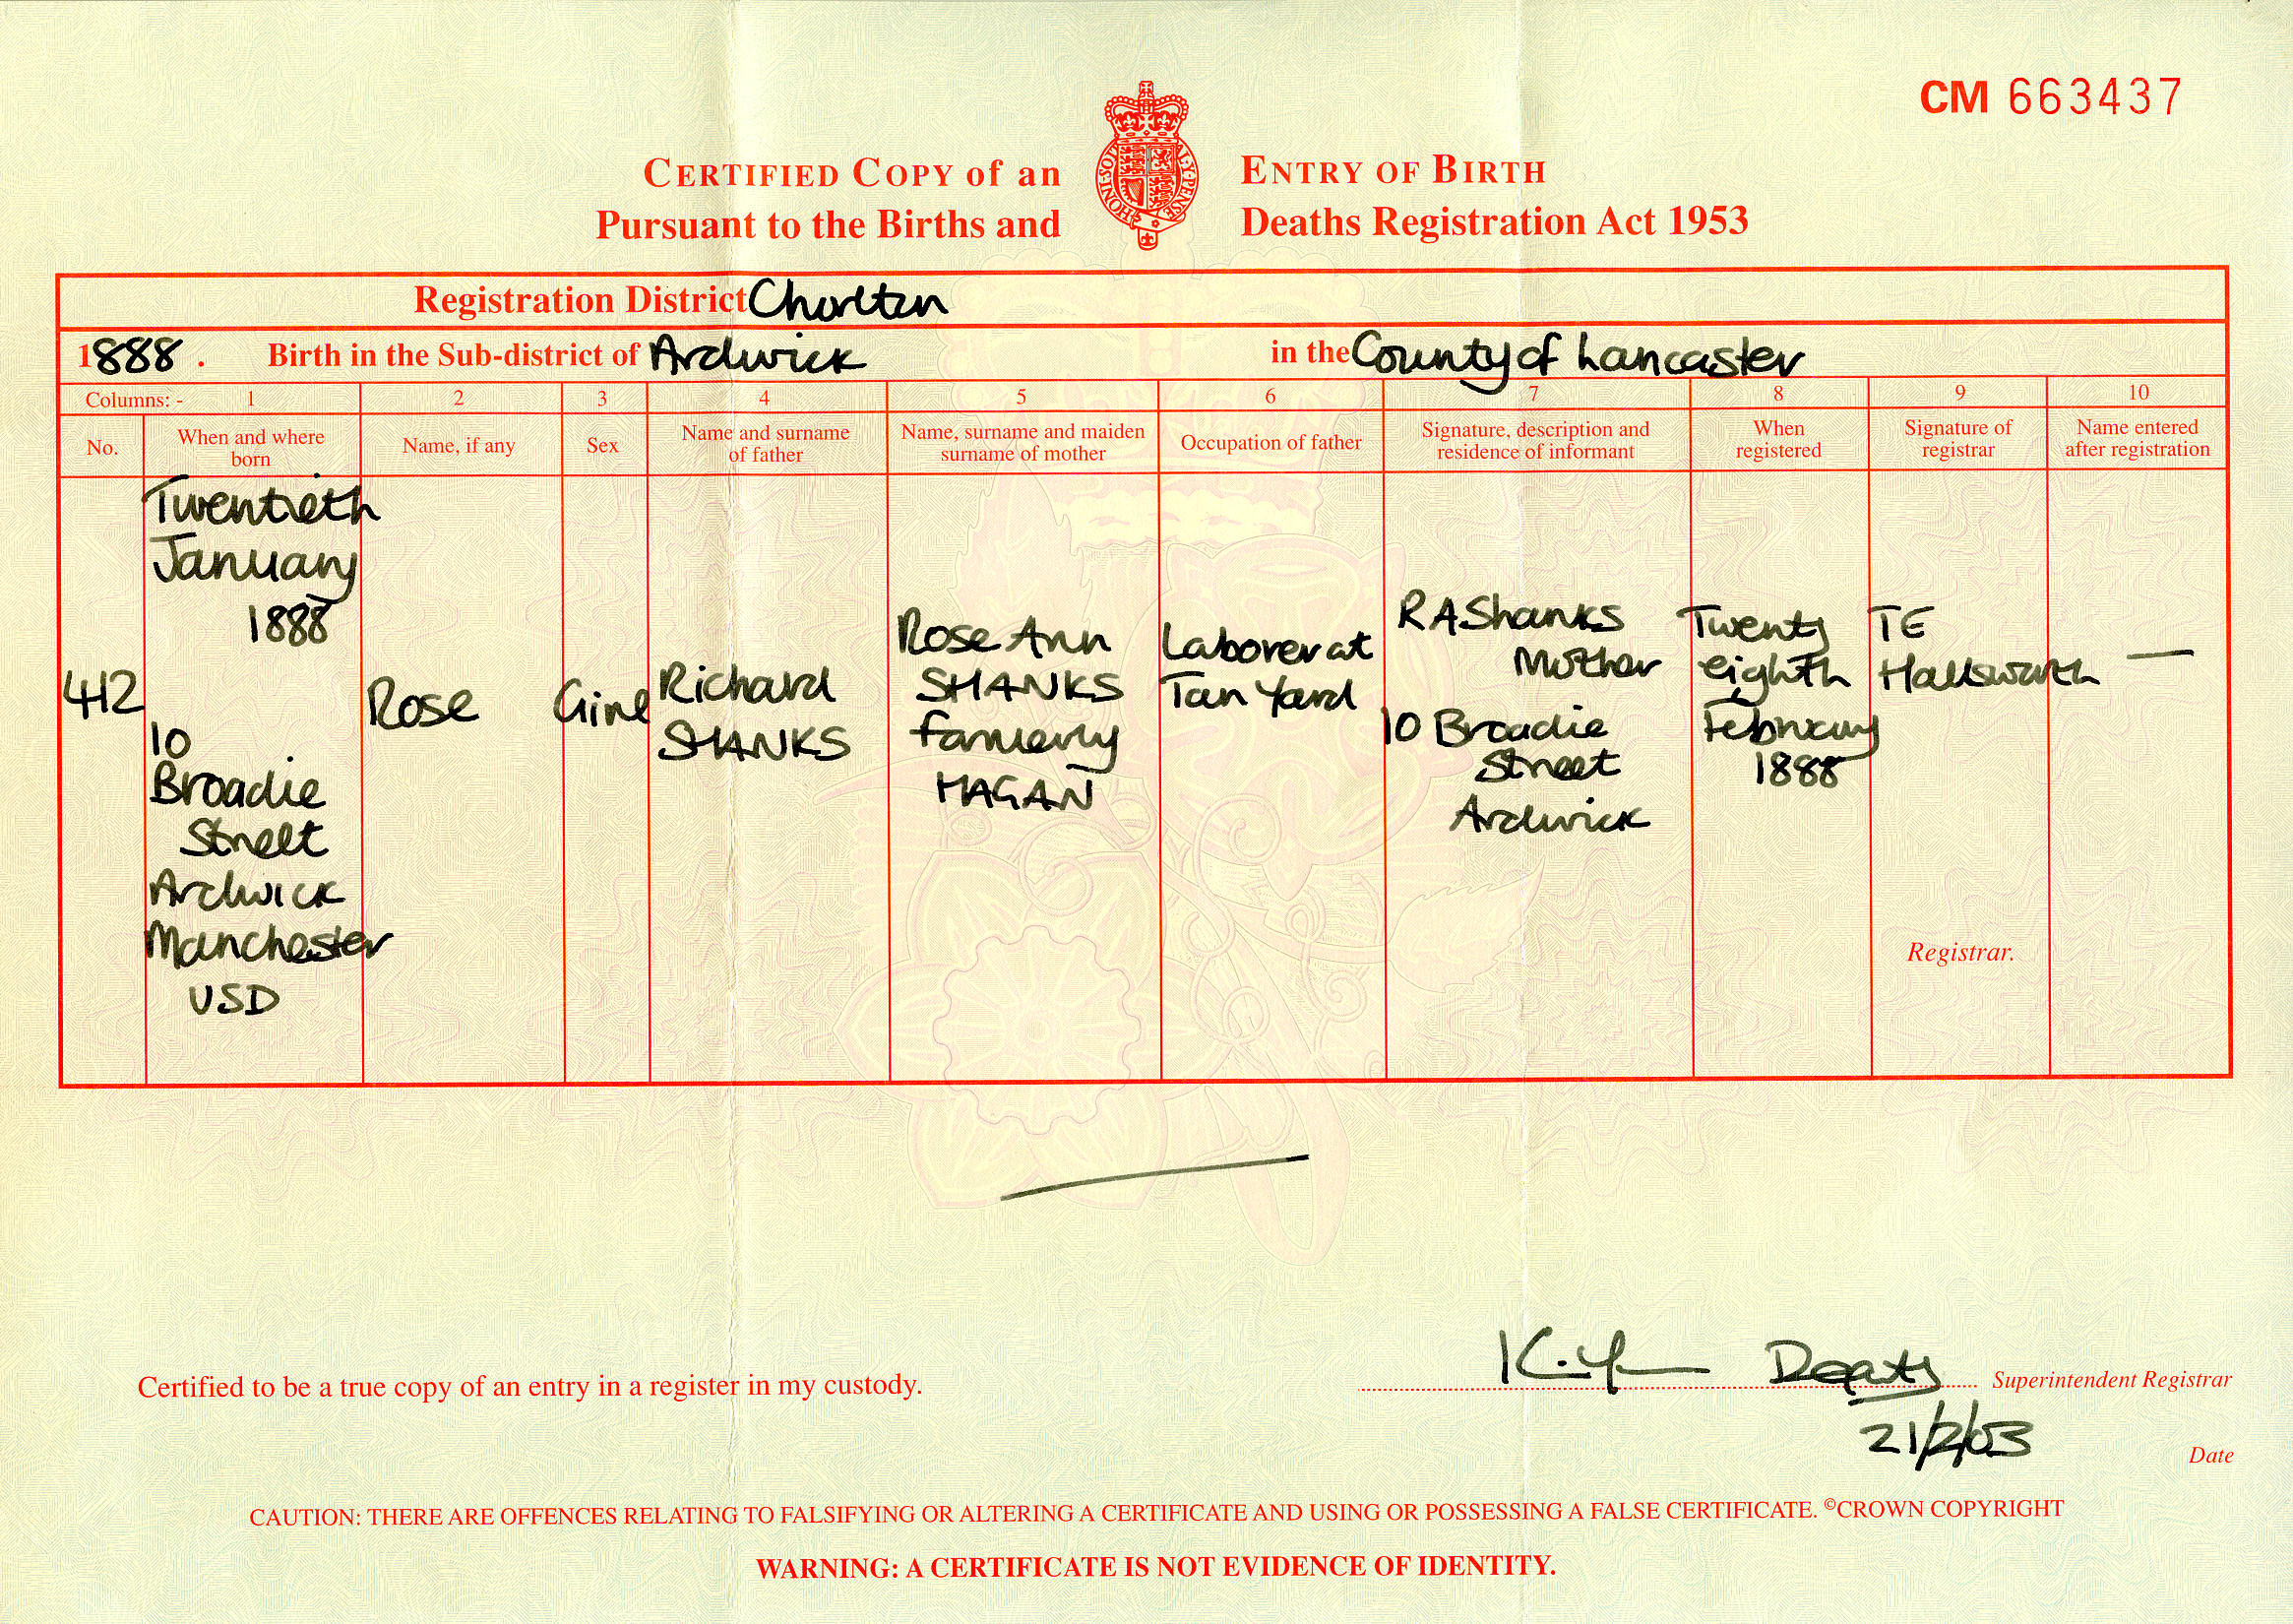 CM 663437
CERTIFIED COPY of an ENTRY OF BIRTH
Pursuant to the Births and Deaths Registration Act 1953
HONI·SOIT ·MAL·Y·PENSE
Registration District Chorlton
1888. Birth in the Sub-district of Ardwick in the County of Lancaster
Columns: - 1 2 3 4 5 6 7 8 9 10
No.
When and where
born
Name, if any
Sex
Name and surname
of father
Name, surname and maiden
surname of mother
Occupation of father
Signature, description and
residence of informant
When
registered
Signature of
registrar
Name entered
after registration
412
Twentieth
January
1888
10
Broadie
Street
Ardwick
Manchester
USD
Rose
Girl
Richard
SHANKS
Rose Ann
SHANKS
formerly
HAGAN
Laborer at
Tan Yard
R A Shanks
Mother
10 Broadie
Street
Ardwick
Twenty
eighth
February
1888
TE
Hallsworth
—
Registrar.
Certified to be a true copy of an entry in a register in my custody.
Deputy Superintendent Registrar
21/2/03 Date
CAUTION: THERE ARE OFFENCES RELATING TO FALSIFYING OR ALTERING A CERTIFICATE AND USING OR POSSESSING A FALSE CERTIFICATE. ©CROWN COPYRIGHT
WARNING: A CERTIFICATE IS NOT EVIDENCE OF IDENTITY.